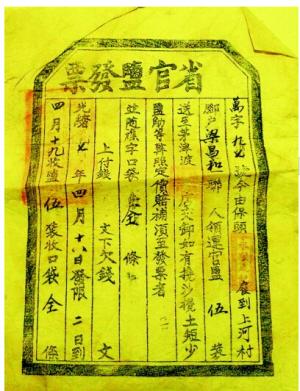 省官鹽發票
萬字 九 號今由保頭 雇到上河村
腳户梁昌和聯 人領運官鹽 伍 裝
送至茅津渡 交卸如有攙沙攪土短少
鹽觔等弊照定價賠補須至發票者
竝隨 字口袋 伍 條
上付錢 文下欠錢 文
光緒 年 四 月 十八 日發限 二 日到
四 月十九收鹽 伍 裝收口袋 全 條